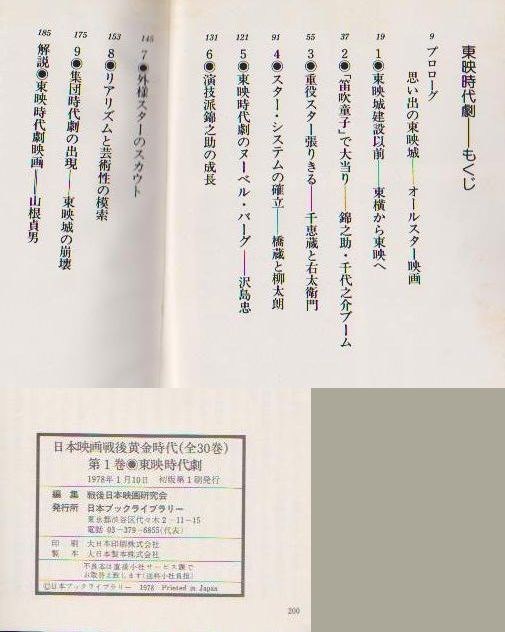 東映時代劇──もくじ
9 プロローグ
思い出の東映城──オールスター映画
19 1◉東映城建設以前──東横から東映へ
37 2◉「笛吹童子」で大当り──錦之助・千代之介ブーム
55 3◉重役スター張りきる──千恵蔵と右太衛門
91 4◉スター・システムの確立──橋蔵と柳太朗
121 5◉東映時代劇のヌーベル・バーグ──沢島忠
131 6◉演技派錦之助の成長
145 7◉外様スターのスカウト
153 8◉リアリズムと芸術性の模索
175 9◉集団時代劇の出現──東映城の崩壊
185 解説◉東映時代劇映画──山根貞男
日本映画戦後黄金時代(全30巻)
第1巻◉東映時代劇
1978年1月10日 初版第1刷発行
編集 戦後日本映画研究会
発行所 日本ブックライブラリー
東京都渋谷区代々木2-11-15
電話 03-379-6855(代表)
印刷 大日本印刷株式会社
製本 大日本製本株式会社
不良本は直接小社サービス課で
お取替え致します(送料小社負担)
©日本ブックライブラリー 1978 Printed in Japan
200